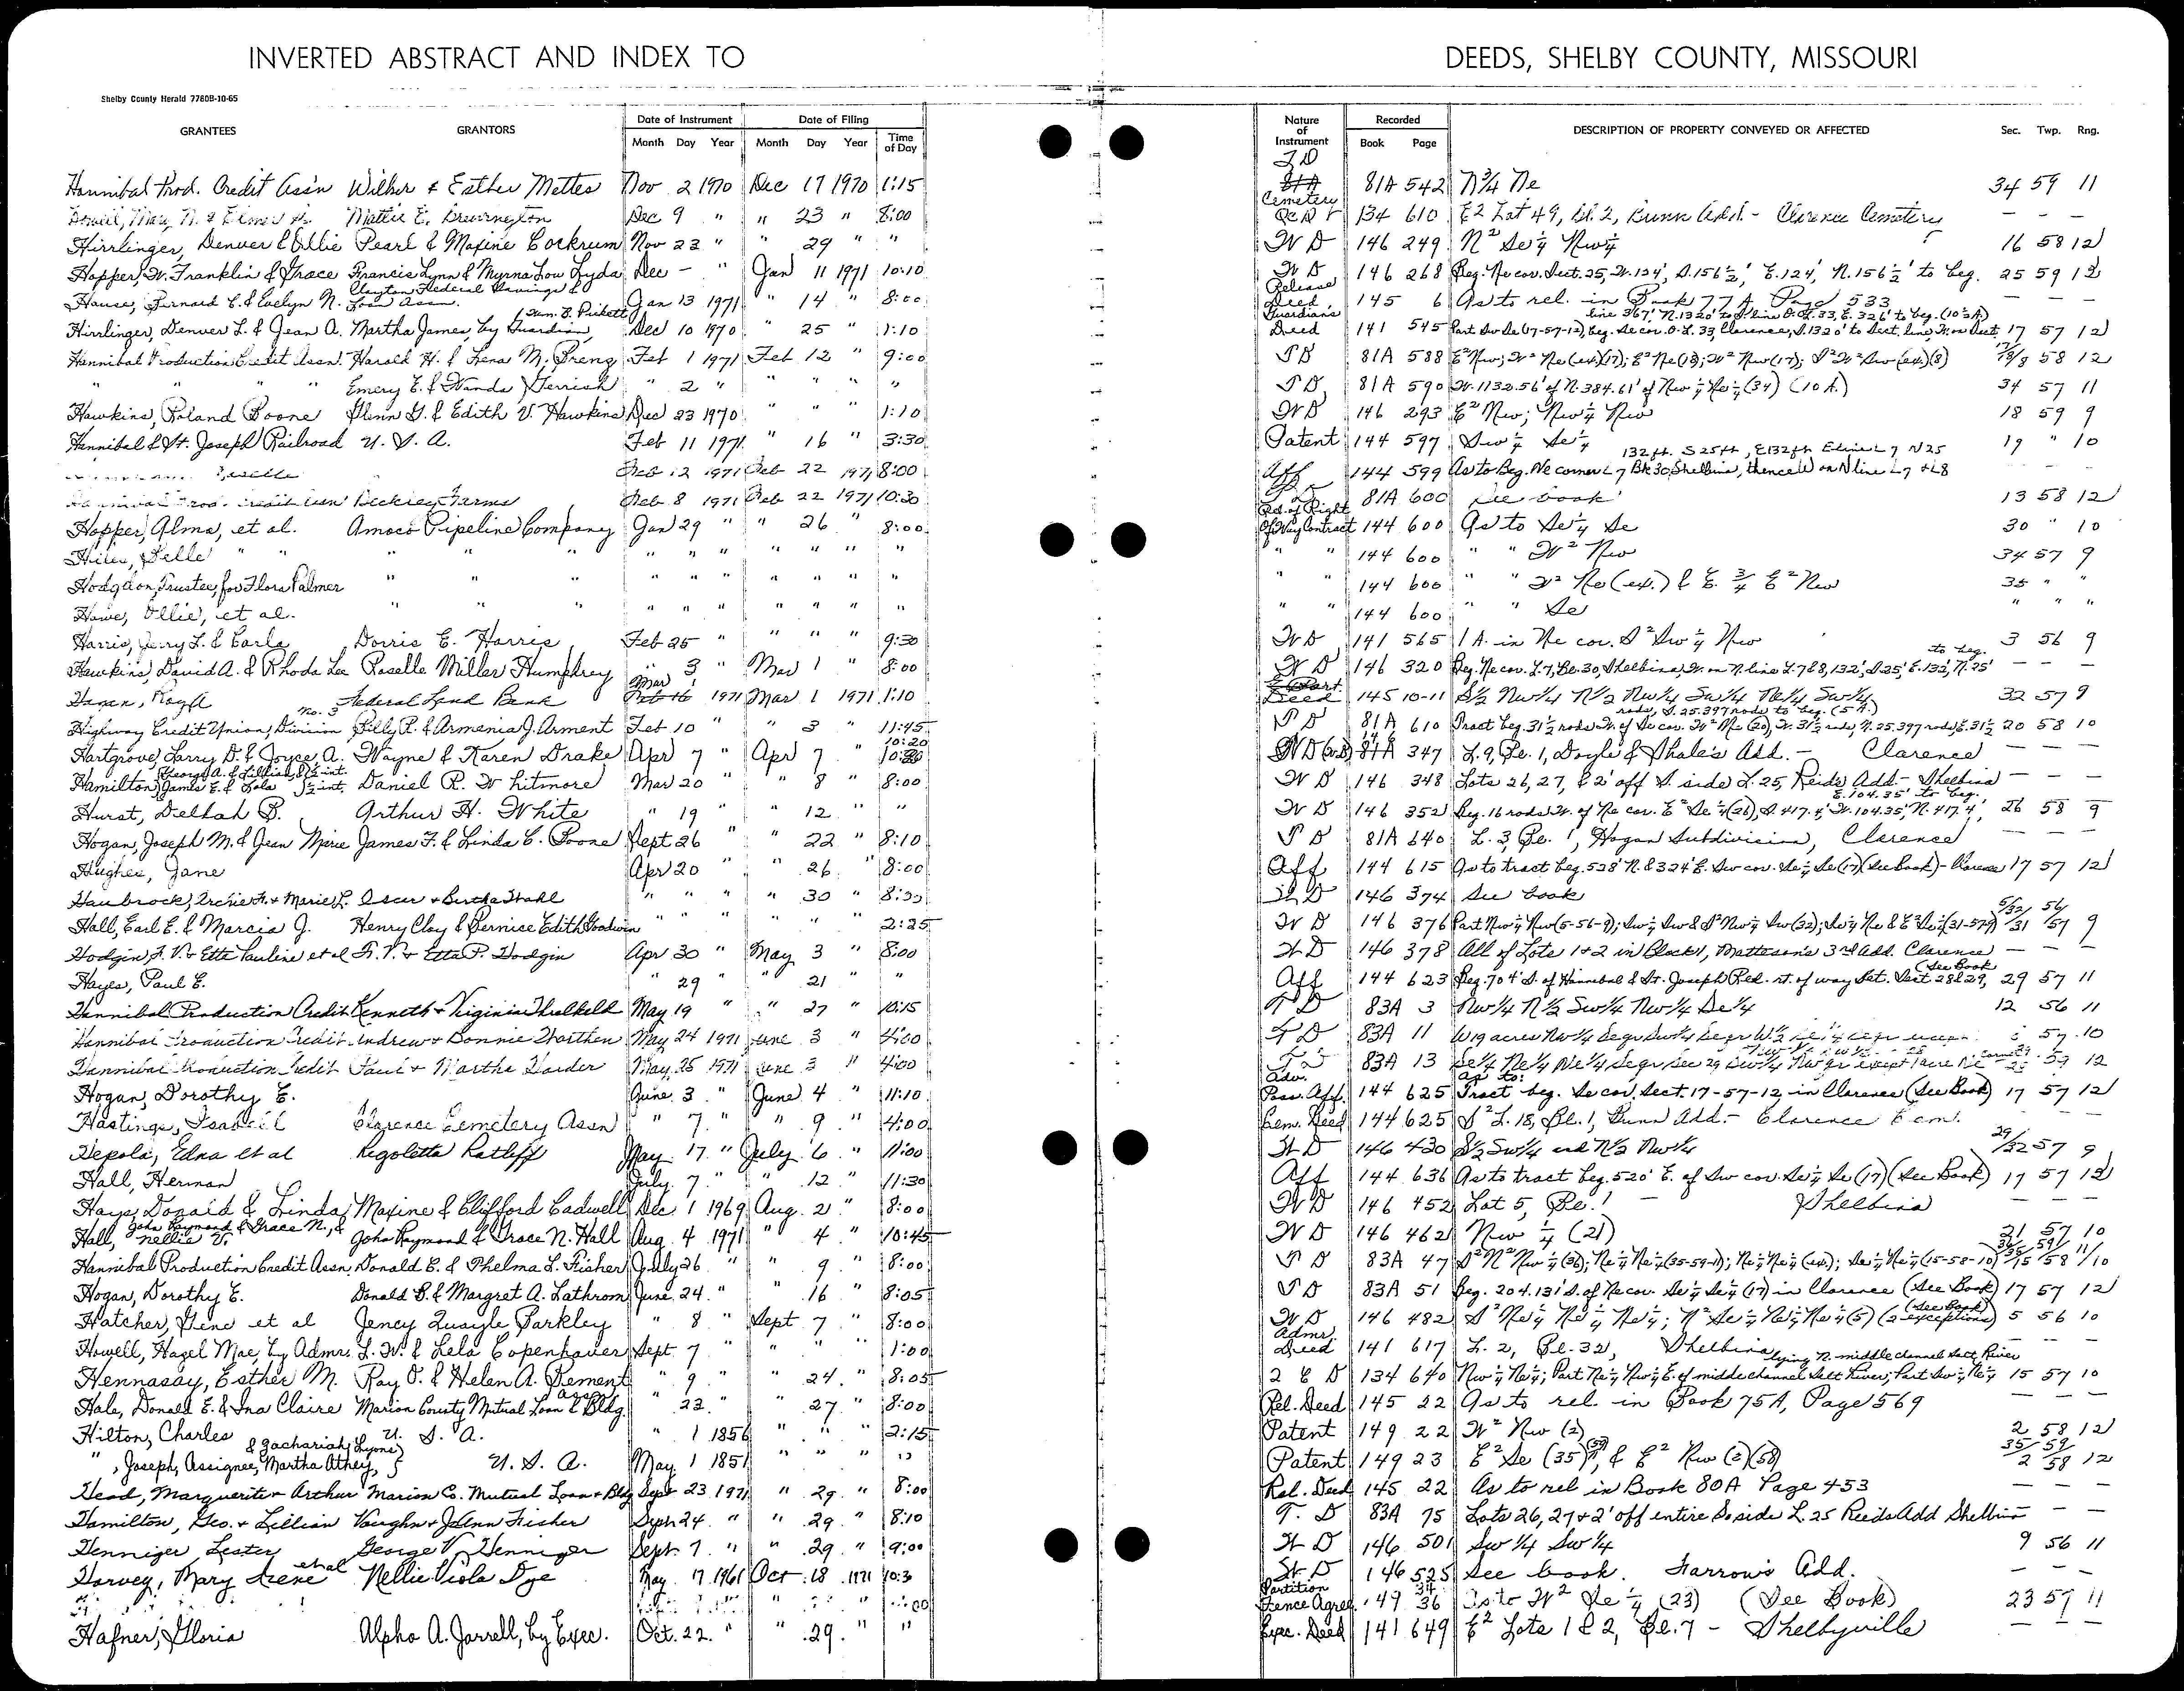 INVERTED ABSTRACT AND INDEX TO DEEDS, SHELBY COUNTY, MISSOURI
Shelby County Herald 7760B-10-65
GRANTEES GRANTORS Date of Instrument Month Day Year Date of Filing Month Day Year Time of Day Nature of Instrument Recorded Book Page DESCRIPTION OF PROPERTY CONVEYED OR AFFECTED Sec. Twp. Rng.
Hannibal Prod. Credit Ass'n Wilber & Esther Mettes Nov 2 1970 Dec 17 1970 1:15 TD 81A 542 N 3/4 Ne 34 59 11
Howell, May N. & Elmer Mattie E. Drewrington Dec 9 " " 23 " 8:00 Cemetery 134 610 E2 Lot 49, Bl. 2, Bunn Add. - Clarence Cemetery — — —
Hirrlinger, Denver & Ollie Pearl & Maxine Cockrum Nov 23 " " 29 " " W D 146 249 N² Se¼ Nw¼ 16 58 12
Hopper, W. Franklin & Grace Francis Lynn & Myrna Lou Lyda Dec — " Jan 11 1971 10:10 W D 146 268 Beg. Ne cor. Sect. 25, W. 124', S. 156½', E. 124', N. 156½' to beg. 25 59 12
House, Bernard C. & Evelyn N. Clayton Federal Savings & Loan Assn. Jan 13 1971 " 14 " 8:00 Release Deed 145 6 As to rel. in Book 77A, Page 533 — — —
Hirrlinger, Denver L. & Jean A. Martha James, by Guardian, Dec 10 1970 " 25 " 1:10 Guardian's Deed 141 545 Part Sw Se (17-57-12), beg. Se cor. O.L. 33, Clarence, S. 1320' to Sect. line, W. on Sect. line 367', N. 1320' to S. line O.L. 33, E. 326' to beg. (10½ A) 17 57 12
Hannibal Production Credit Assn. Harold H. & Lena M. Preng Feb 1 1971 Feb 12 " 9:00 T D 81A 588 E² Nw; W² Ne (ex.)(17); E² Ne (18); W² Nw (17); S² W² Sw (ex.)(8) 58 12
" " " " Emery E. & Wanda Gerrish " 2 " " " " " T D 81A 590 W. 1132.56' of N. 384.61' of Nw¼ Ne¼ (34) (10 A.) 34 57 11
Hawkins, Roland Boone Glenn G. & Edith V. Hawkins Dec 23 1970 " " " 1:10 W D 146 293 E² Nw; Nw¼ Nw 18 59 9
Hannibal & St. Joseph Railroad U. S. A. Feb 11 1971 " 16 " 3:30 Patent 144 597 Sw¼ Se¼ 19 " 10
Feb 12 1971 Feb 22 1971 8:00 Aff 144 599 As to Beg. Ne corner L 7 Bk 30, Shelbina, thence W on N line L 7 & L8 132 ft. S 25 ft, E132 ft E line L 7 N 25 — — —
Hannibal Prod. Credit Assn Beckley Farms Feb 8 1971 Feb 22 1971 10:30 81A 600 See book 13 58 12
Hopper, Alma, et al. Amoco Pipeline Company Jan 29 " " 26 " 8:00 Rel. of Right Of Way Contract 144 600 As to Se¼ Se 30 " 10
Hiles, Belle " " " " " " " " " " " " " " 144 600 " " W² Nw 34 57 9
Hodgdon, Trustee, for Flora Palmer " " " " " " " " " " " " 144 600 " " W² Ne (ex.) & E. ¾ E² Nw 35 " "
Howe, Ollie, et al. " " " " " " " " " " " " 144 600 " " Se " " "
Harris, Jerry L. & Carla Dorris E. Harris Feb 25 " " " " 9:30 W D 141 565 1 A. in Ne cor. S² Sw¼ Nw 3 56 9
Hawkins, David A. & Rhoda Lee Roselle Miller Humphrey " 3 " Mar 1 " 8:00 W D 146 320 Beg. Ne cor. L. 7, Bl. 30, Shelbina, W. on N. line L. 7 & 8, 132', S. 25', E. 132', N. 25' to beg. — — —
Federal Land Bank Mar 1 1971 Mar 1 1971 1:10 Deed 145 10-11 S½ Nw¼ N½ Nw¼ Sw¼ Ne¼ Sw¼ 32 57 9
Highway Credit Union, Division No. 3 Billy R. & Armenia J. Arment Feb 10 " " 3 " 11:45 T D 81A 610 Tract beg. 31½ rods W. of Se cor. W² Ne (20), W. 31½ rods, N. 25.397 rods, E. 31½ rods, S. 25.397 rods to beg. (5 A.) 20 58 10
Hartgrove, Larry D. & Joyce A. Wayne & Karen Drake Apr 7 " Apr 7 " 10:20 W D 146 347 L. 9, Bl. 1, Doyle & Shale's Add. - Clarence — — —
Hamilton, George A. & Lillian, & ½ int. James E. & Lola ½ int. Daniel R. Whitmore Mar 20 " " 8 " 8:00 W D 146 348 Lots 26, 27, & 2' off S. side L. 25, Reids Add. - Shelbina — — —
Hurst, Dellah B. Arthur H. White " 19 " " 12 " " W D 146 352 Beg. 16 rods W. of Ne cor. E² Se¼ (26), S. 417.4', W. 104.35', N. 417.4', E. 104.35' to beg. 26 58 9
Hogan, Joseph M. & Jean Marie James F. & Linda C. Boone Sept 26 " " 22 " 8:10 T D 81A 640 L. 3, Bl. 1, Hogan Subdivision, Clarence — — —
Hughes, Jane Apr 20 " " 26 " 8:00 Aff 144 615 As to tract beg. 528' N. & 324' E. Sw cor. Se¼ Se (17) (See Book) - Clarence 17 57 12
Haubrock, Archie F. & Marie L. Oscar & Bertha Stahl " " " " 30 " 8:00 W D 146 374 See book
Hall, Earl E. & Marcia J. Henry Clay & Bernice Edith Goodwin " " " " " " 2:25 W D 146 376 Part Nw¼ Nw (5-56-9); Sw¼ Sw & S² Nw¼ Sw (32); Se¼ Ne & E² Se¼ (31-57-9) 5/32/31 56/57 9
Hodgin, F. V. & Etta Pauline et al F. V. & Etta P. Hodgin Apr 30 " May 3 " 8:00 W D 146 378 All of Lots 1 & 2 in Block 1, Matteson's 3rd Add. Clarence — — —
Hayes, Paul E. " 29 " " 21 " " Aff 144 623 Beg. 704' S. of Hannibal & St. Joseph Rld. rt. of way bet. Sect 28 & 29, (See Book) 29 57 11
Hannibal Production Credit Kenneth & Virginia Threlkeld May 19 " " 27 " 10:15 T D 83A 3 Nw¼ N½ Sw¼ Nw¼ Se¼ 12 56 11
Hannibal Production Credit Andrew & Bonnie Worthen May 24 1971 June 3 " 4:00 T D 83A 11 57 10
Hannibal Production Credit Paul & Martha Harder May 25 1971 June 3 " 4:00 T D 83A 13 59 12
Hogan, Dorothy E. June 3 " June 4 " 11:10 Adv. Poss. Aff. 144 625 As to: Tract beg. Se cor. Sect. 17-57-12, in Clarence (See Book) 17 57 12
Hastings, Isabell Clarence Cemetery Assn " 7 " " 9 " 4:00 Cem. Deed 144 625 S² L. 18, Bl. 1, Bunn Add. - Clarence Cem. — — —
Hepola, Edna et al Rigoletta Ratliff May 17 " July 6 " 11:00 W D 146 430 S½ Sw¼ and N½ Nw¼ 29/32 57 9
Hall, Herman July 7 " " 12 " 11:30 Aff 144 636 As to tract beg. 520' E. of Sw cor. Se¼ Se (17) (See Book) 17 57 12
Hays, Donald & Linda Maxine & Clifford Cadwell Dec 1 1969 Aug. 2 " 8:00 W D 146 452 Lot 5, Bl. 1 — Shelbina — — —
Hall, John Raymond & Grace N., & Nellie V. John Raymond & Grace N. Hall Aug. 4 1971 " 4 " 10:45 W D 146 462 Nw¼ (21) 21 57 10
Hannibal Production Credit Assn. Donald E. & Thelma L. Fisher July 26 " " 9 " 8:00 T D 83A 47 S² N² Nw¼ (36); Ne¼ Ne¼ (35-59-11); Ne¼ Ne¼ (ex.); Se¼ Ne¼ (15-58-10) 36/35/15 59/58 11/10
Hogan, Dorothy E. Donald B. & Margret A. Lathrom June 24 " " 16 " 8:05 T D 83A 51 Beg. 204.131' S. of Ne cor. Se¼ Se¼ (17) in Clarence (See Book) 17 57 12
Hatcher, Gene et al Jency Quayle Barkley " 8 " Sept 7 " 8:00 W D 146 482 S² Ne¼ Ne¼ Ne¼; N² Se¼ Ne¼ Ne¼ (5) (2 exceptions) (See Book) 5 56 10
Howell, Hazel Mae, by Admr. L. W. & Lela Copenhaver Sept. 7 " " " " 1:00 Admr. Deed 141 617 L. 2, Bl. 32, Shelbina — — —
Hennasay, Esther M. Ray O. & Helen A. Dement " 9 " " 24 " 8:05 2 C D 134 640 Nw¼ Ne¼; Part Ne¼ Nw¼ E. of middle channel Salt River; Part Sw¼ Ne¼ lying N. middle channel Salt River 15 57 10
Hale, Donald E. & Ina Claire Marion County Mutual Loan & Bldg. Assn " 23 " " 27 " 8:00 Rel. Deed 145 22 As to rel. in Book 75A, Page 569 — — —
Hilton, Charles U. S. A. " 1 1856 " " " 2:15 Patent 149 22 W² Nw (2) 2 58 12
" , Joseph, Assignee, Martha Athey, & Zachariah Lyons U. S. A. May 1 1851 " " " " Patent 149 23 E² Se (35)(59), & E² Nw (2)(58) 35/2 59/58 12
Head, Marguerite & Arthur Marion Co. Mutual Loan & Bldg Sept 23 1971 " 29 " 8:00 Rel. Deed 145 22 As to rel in Book 80A Page 453 — — —
Hamilton, Geo. & Lillian Vaughn & JoAnn Fisher Sept 24 " " 29 " 8:10 T. D 83A 75 Lots 26, 27 & 2' off entire S side L. 25 Reids Add Shelbina — — —
Henniger Lester George V. Henniger Sept. 7 " " 29 " 9:00 W D 146 501 Sw¼ Sw¼ 9 56 11
Harvey, Mary Irene et al Nellie Viola Dye May 17 1961 Oct 18 1971 10:3 W D 146 525 See book. Farrow's Add. — — —
Partition Fence Agree. 149 36 As to W² Se¼ (23) (See Book) 23 57 11
Hafner, Gloria Alpha A. Jarrell, by Exec. Oct. 22 " " 29 " " Exec. Deed 141 649 E² Lots 1 & 2, Bl. 7 - Shelbyville — — —